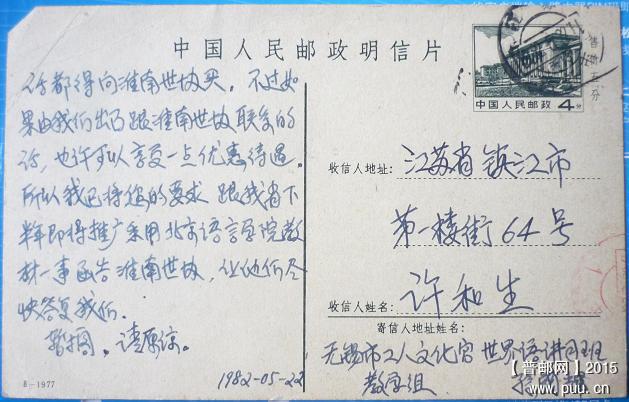 中国人民邮政明信片
中国人民邮政 4分
话都得向淮南世协买。不过如
果由我们出面跟淮南世协联系的
话,也许可以享受一点优惠待遇。
所以我已将您的要求 跟我省下
半年即将推广采用北京语言学院教
材一事函告淮南世协,让他们尽
快答复我们.
暂搁,请原谅。
1982-05-22
8-1977
收信人地址:
江苏省镇江市
第一楼街64号
收信人姓名:
许和生
寄信人地址姓名:
无锡市工人文化宫 世界语讲习班
教学组
【普邮网】2015
www.puu.cn